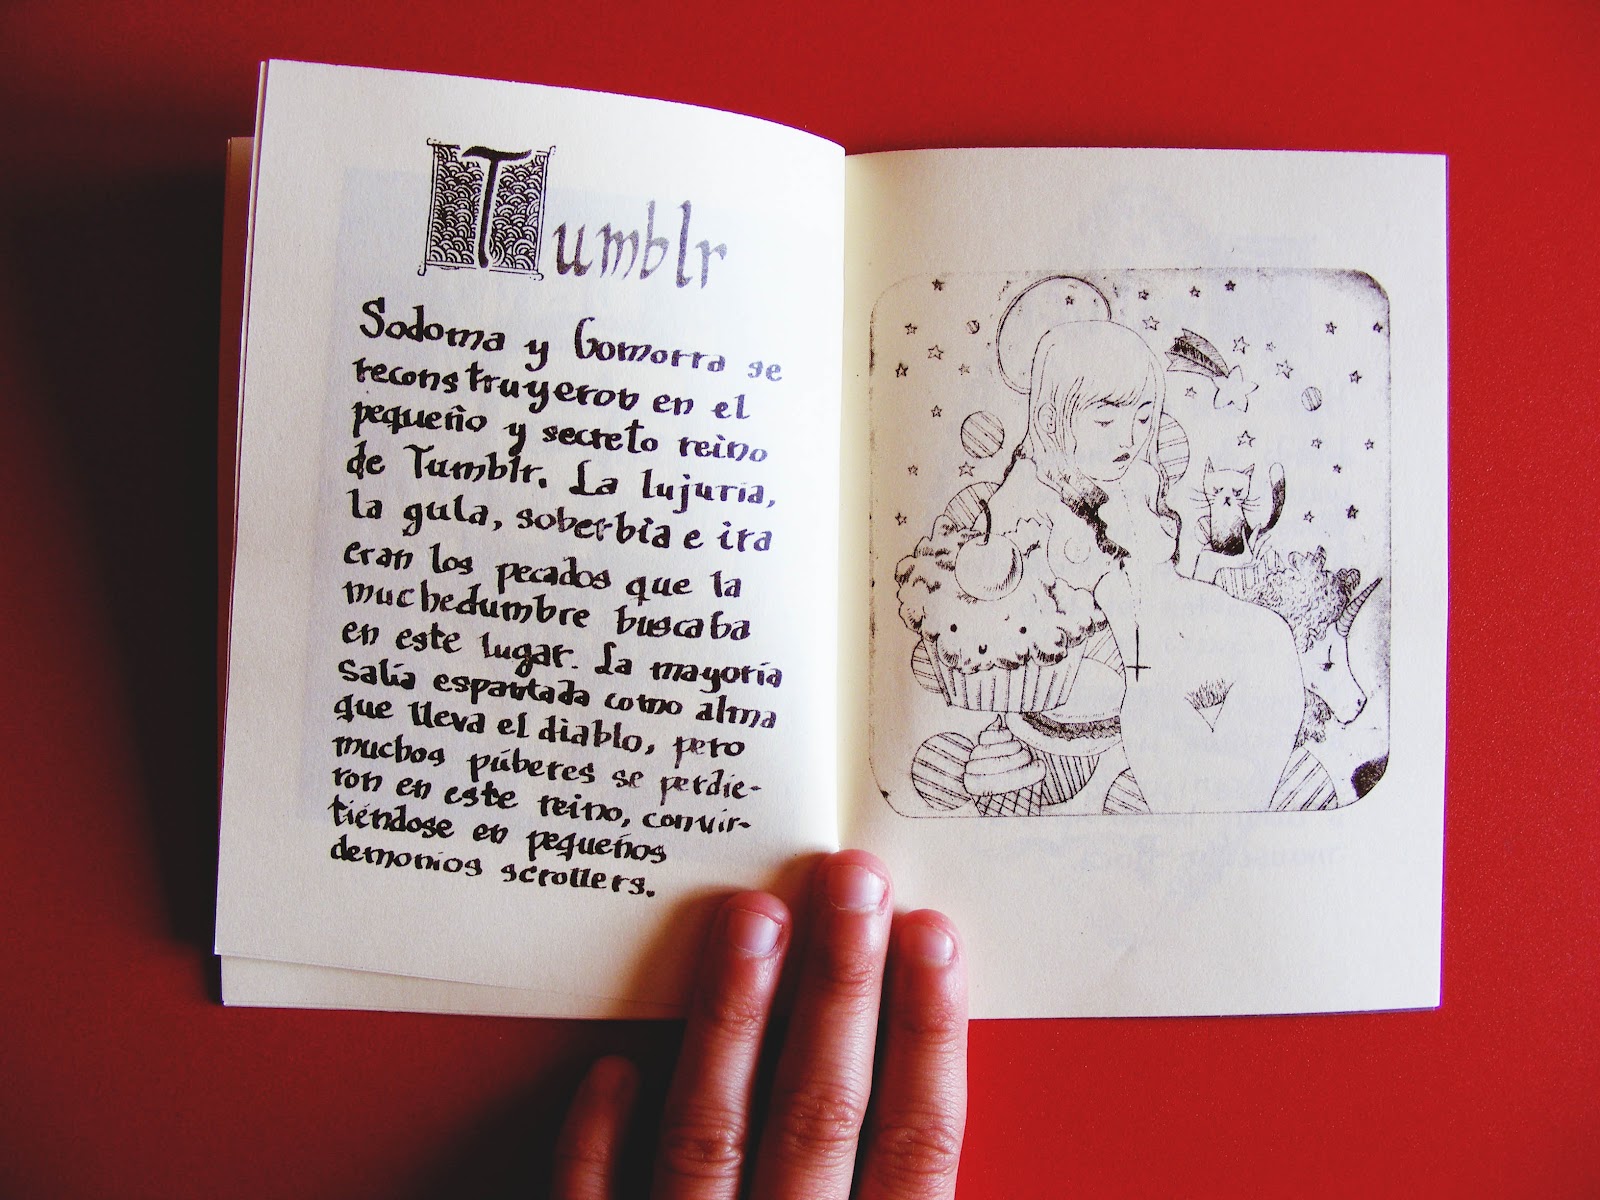 Tumblr
Sodoma y Gomorra se
reconstruyeron en el
pequeño y secreto reino
de Tumblr. La lujuria,
la gula, soberbia e ira
eran los pecados que la
muchedumbre buscaba
en este lugar. La mayoría
salía espantada como alma
que lleva el diablo, pero
muchos púberes se perdie-
ron en este reino, convir-
tiéndose en pequeños
demonios scrollers.